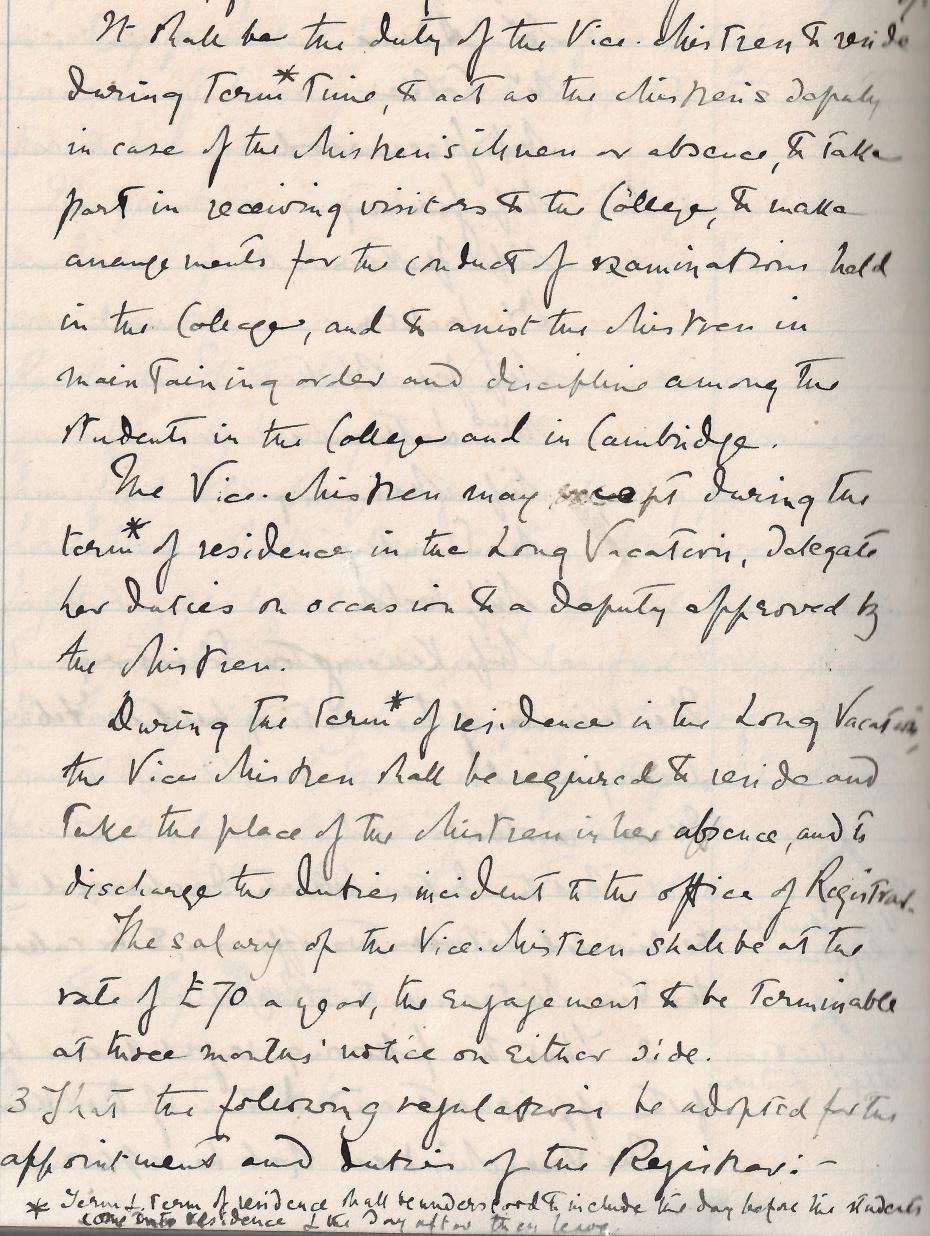 It shall be the duty of the Vice-Mistress to reside
during Term* Time, to act as the Mistress's deputy
in case of the Mistress's illness or absence, to take
part in receiving visitors to the College, to make
arrangements for the conduct of examinations held
in the College, and to assist the Mistress in
maintaining order and discipline among the
students in the College and in Cambridge.
The Vice-Mistress may, except during the
term* of residence in the Long Vacation, delegate
her duties on occasion to a deputy approved by
the Mistress.
During the Term* of residence in the Long Vacation,
the Vice Mistress shall be required to reside and
take the place of the Mistress in her absence, and to
discharge the duties incident to the office of Registrar.
The salary of the Vice-Mistress shall be at the
rate of £70 a year, the engagement to be terminable
at three months' notice on either side.
3 That the following regulations be adopted for the
appointment and duties of the Registrar:-
* Term & term of residence shall be understood to include the day before the students
come into residence & the day after they leave.